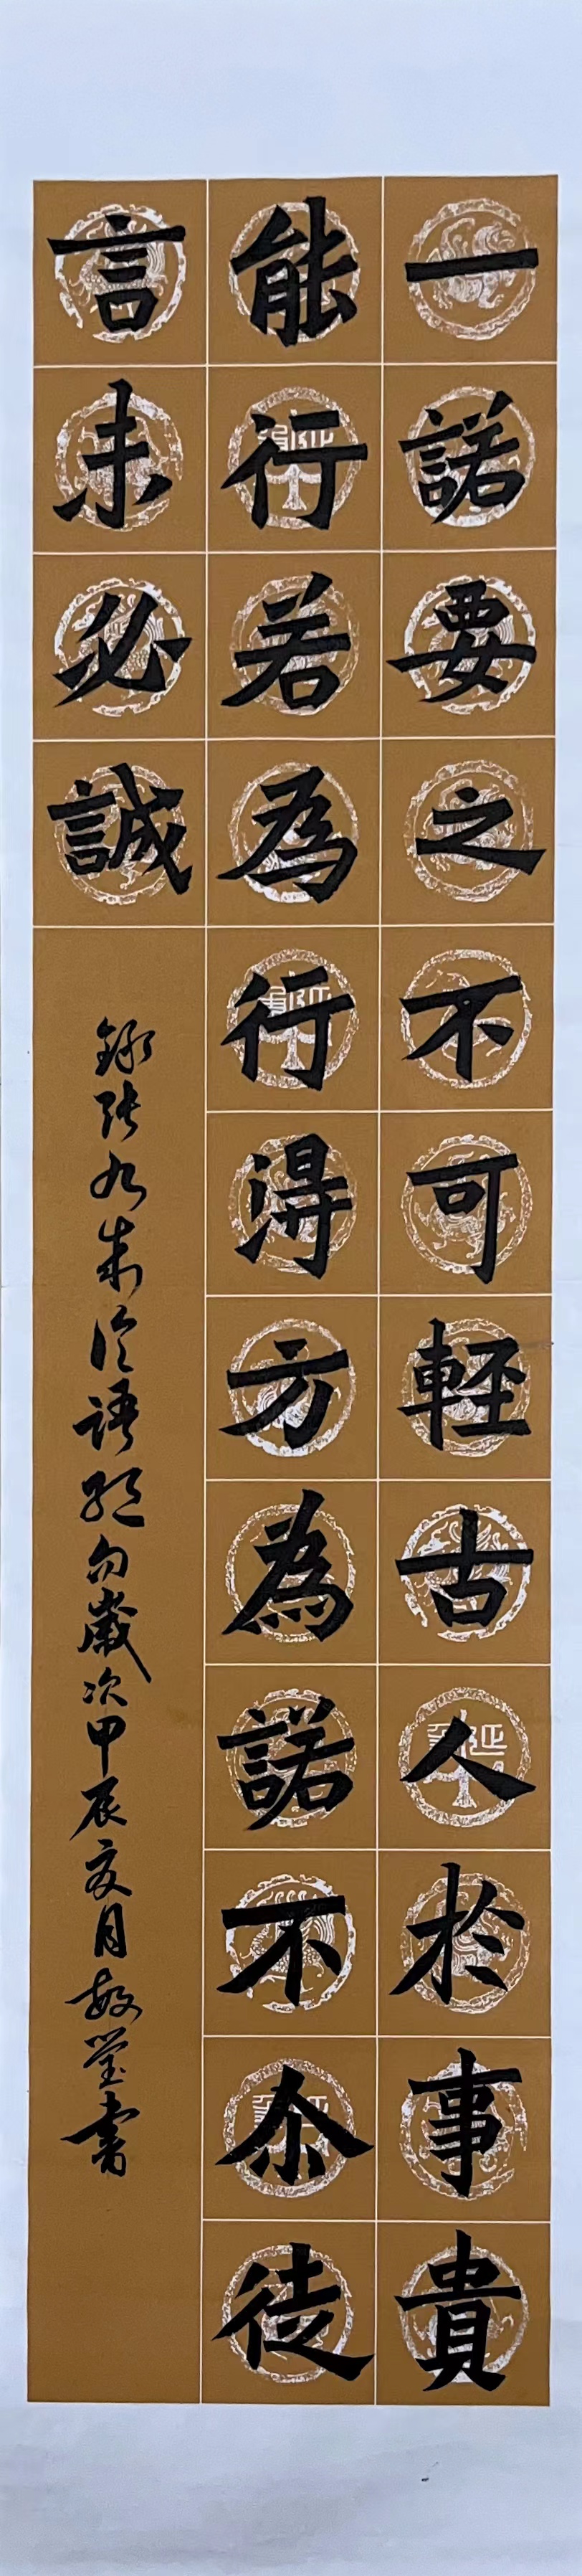 一諾要之不可輕古人於事貴
能行若為行得方為諾不尒徒
言未必誠
錄張九成論語絕句歲次甲辰夏月敏瑩書